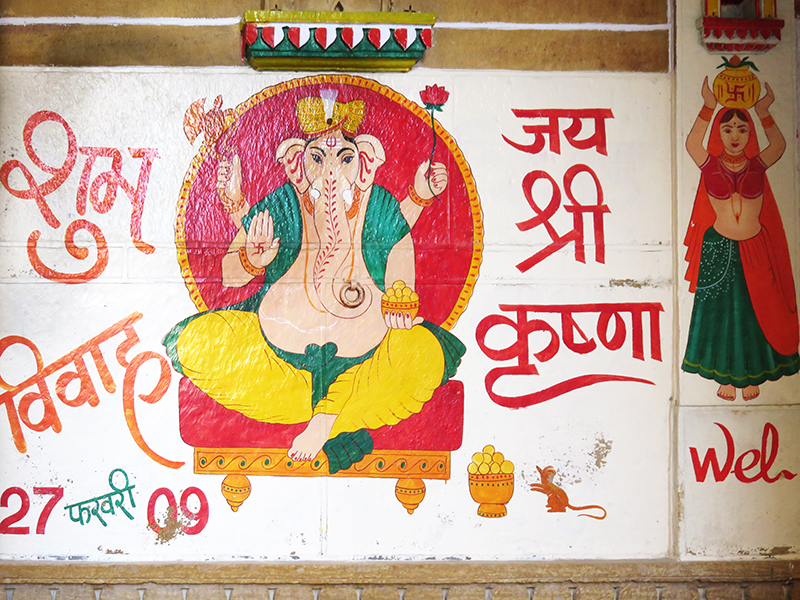 शुभ
विवाह
27 फरवरी 09
जय
श्री
कृष्णा
卐
Wel.